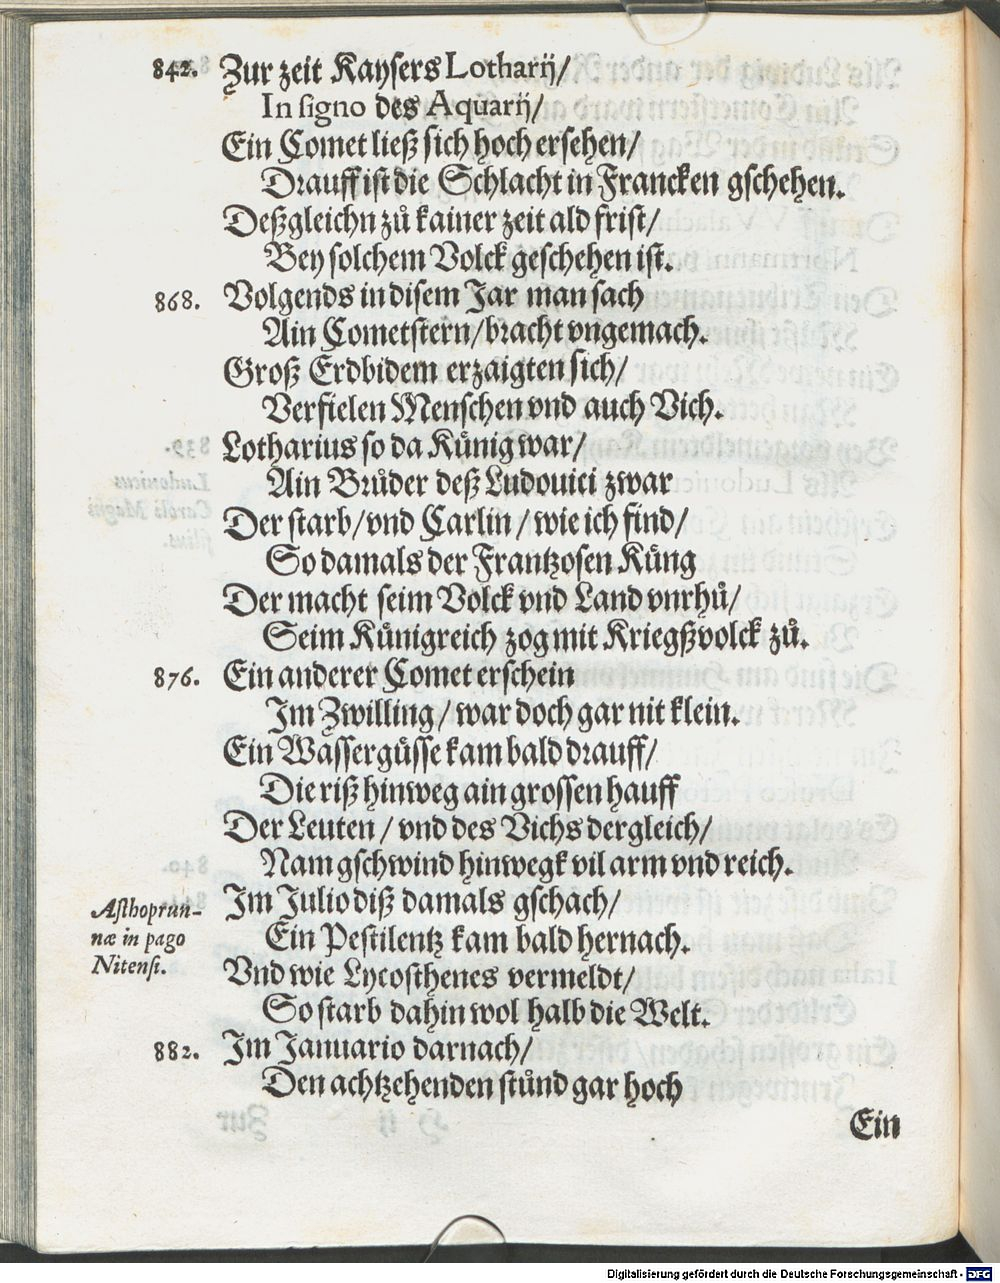 842. Zur zeit Kaysers Lotharij/
In signo des Aquarij/
Ein Comet ließ sich hoch ersehen/
Drauff ist die Schlacht in Francken gschehen.
Deßgleichn zů kainer zeit ald frist/
Bey solchem Volck geschehen ist.
868. Volgends in disem Jar man sach
Ain Cometstern/ bracht vngemach.
Groß Erdbidem erzaigten sich/
Verfielen Menschen vnd auch Vich.
Lotharius so da Künig war/
Ain Brůder deß Ludouici zwar
Der starb/ vnd Carlin/ wie ich find/
So damals der Frantzosen Küng
Der macht seim Volck vnd Land vnrhů/
Seim Künigreich zog mit Kriegßvolck zů.
876. Ein anderer Comet erschein
Im Zwilling/ war doch gar nit klein.
Ein Wassergüsse kam bald drauff/
Die riß hinweg ain grossen hauff
Der Leuten/ vnd des Vichs dergleich/
Nam gschwind hinwegk vil arm vnd reich.
Im Julio diß damals gschach/
Asthoprun-
næ in pago
Nitensi.
Ein Pestilentz kam bald hernach.
Vnd wie Lycosthenes vermeldt/
So starb dahin wol halb die Welt.
882. Im Januario darnach/
Den achtzehenden stůnd gar hoch
Ein
Digitalisierung gefördert durch die Deutsche Forschungsgemeinschaft - DFG